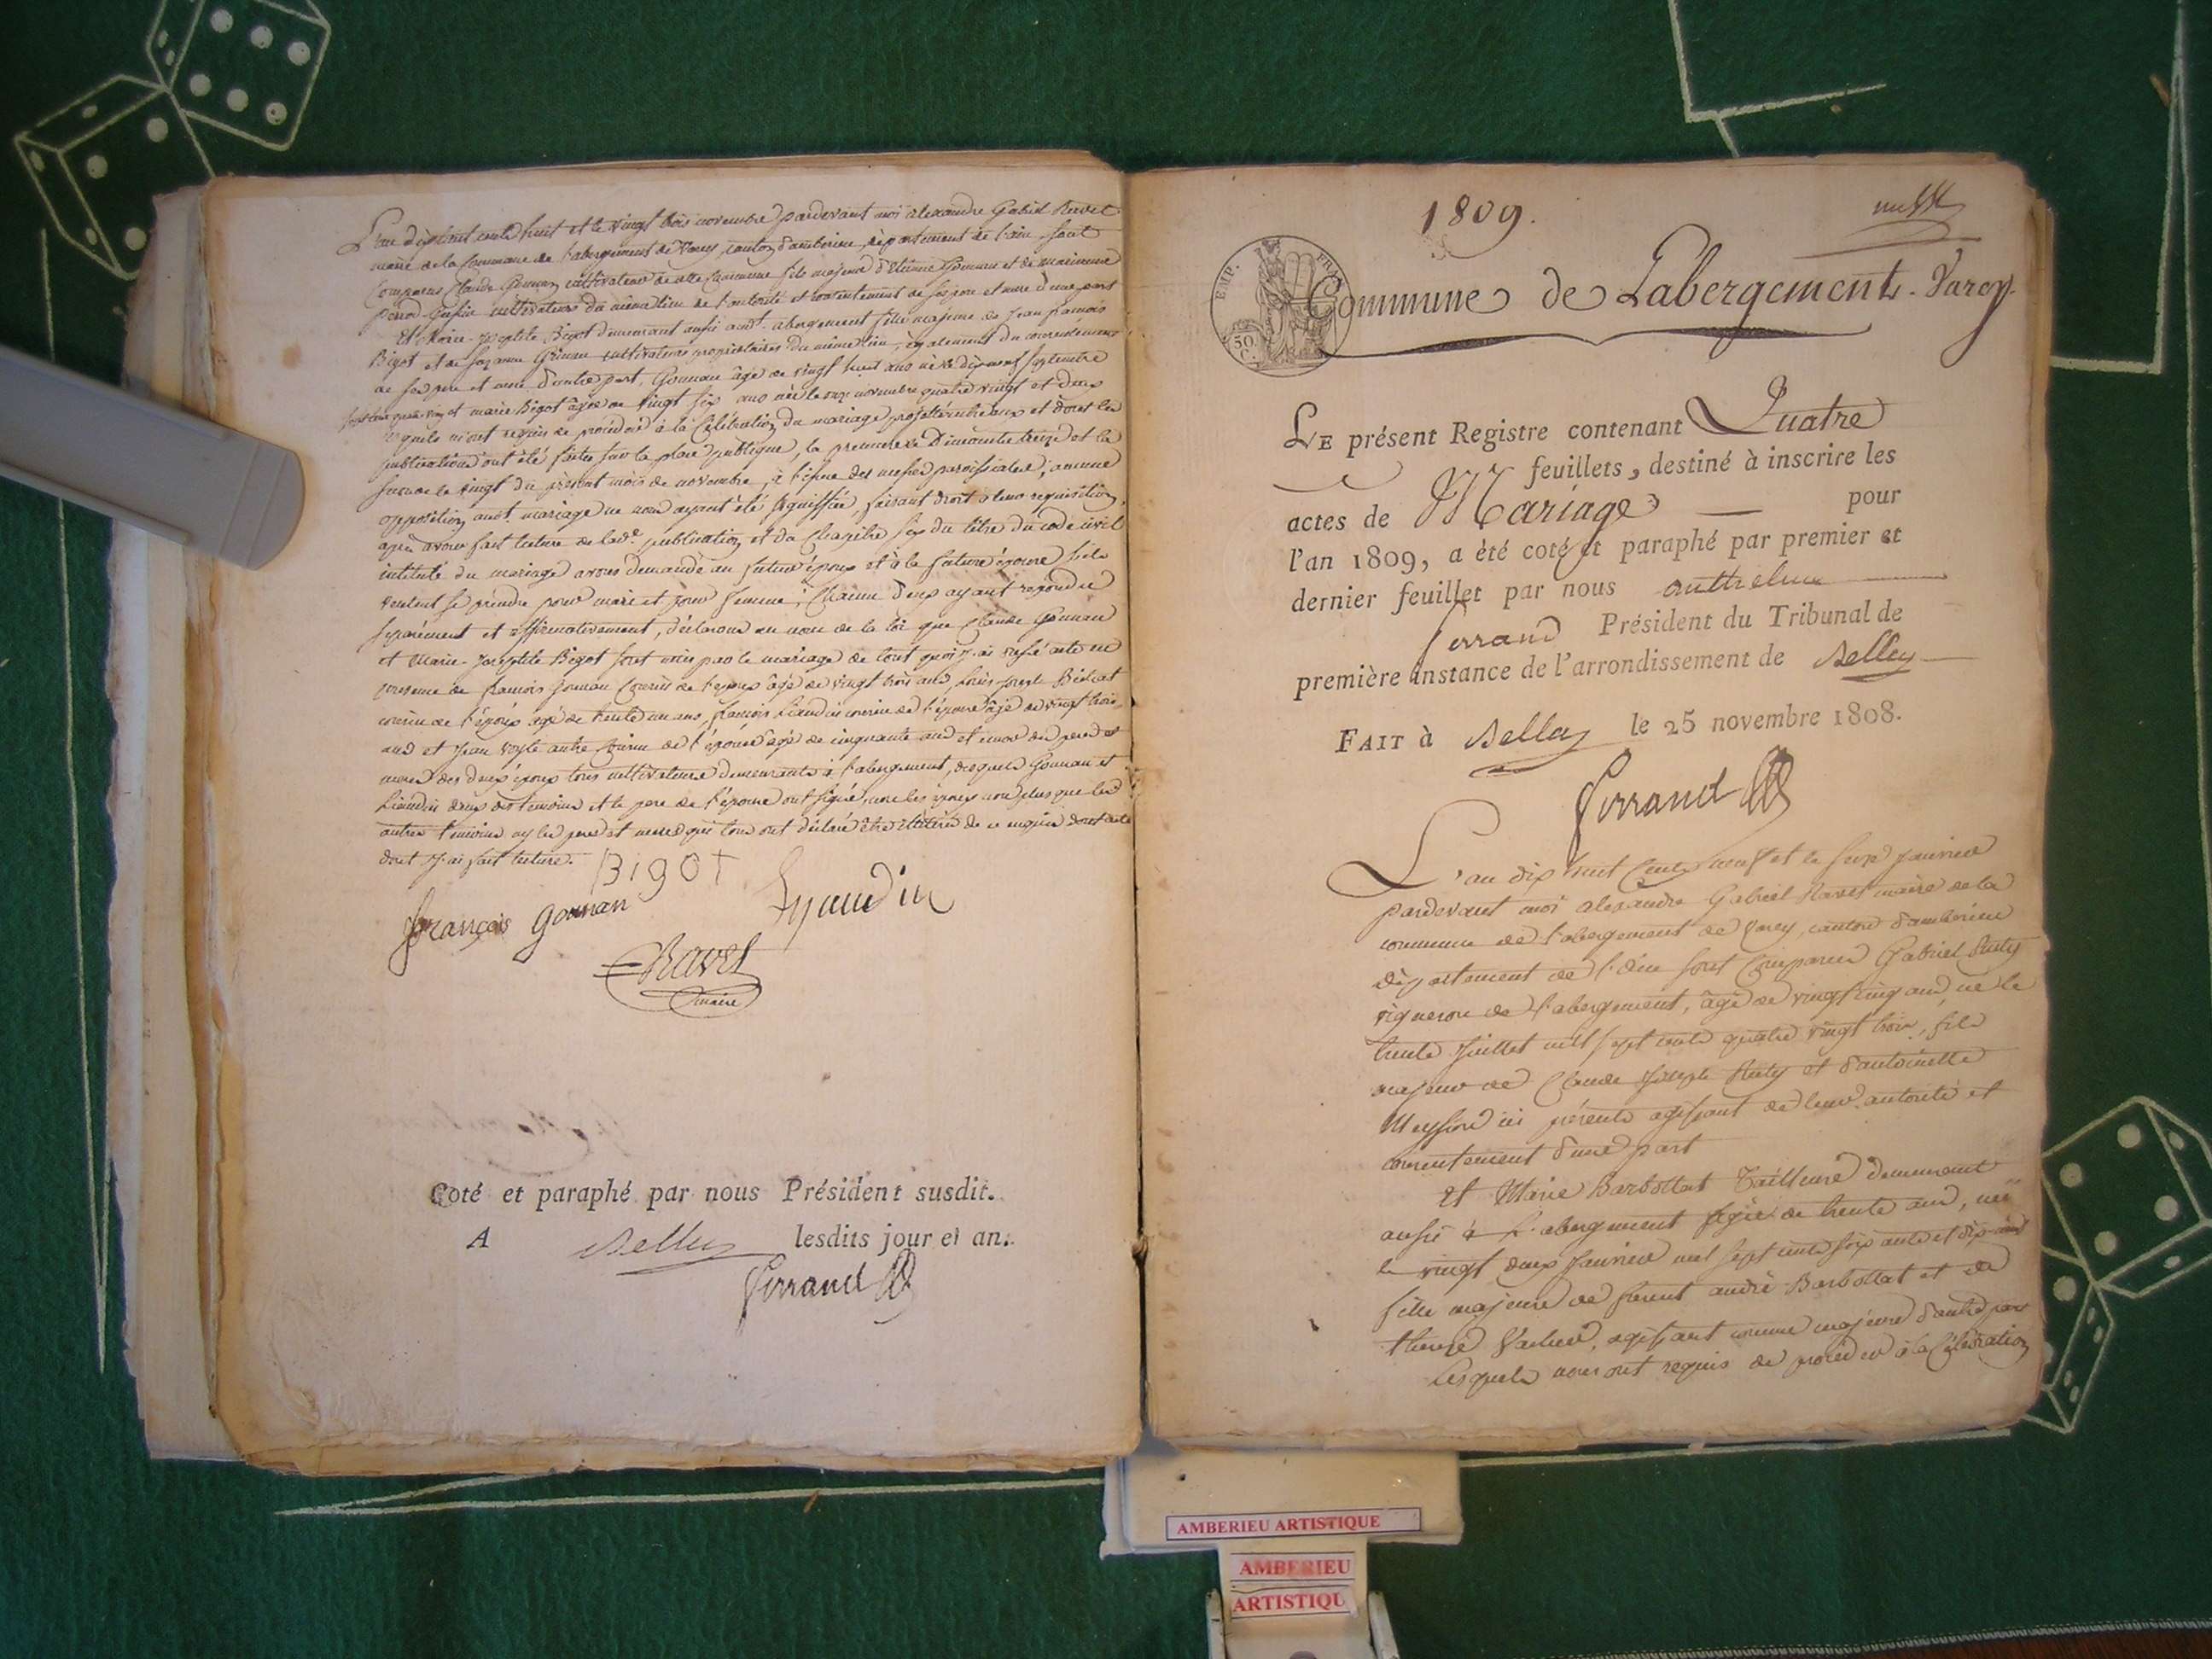 L'an dix huit cents huit et le vingt trois novembre pardevant moi alexandre Gabriel Ravet
maire de la Commune de l'abergement de Varey, canton d'amberieu, département de l'ain, sont
Comparus Claude Gonnan cultivateur de cette Commune fils majeur d'Etienne Gonnan et de
cultivateurs du même lieu de l'autorité et consentement de ses pere et mere d'une part
Et Marie-Josephte Bigot demeurant aussi aud.t abergement fille majeure de Jean françois
Bigot et de Suzanne cultivateurs propriétaires du même lieu, également du consentement
de ses pere et mere d'autre part, Gonnan âgé de vingt huit ans né le dix neuf septembre
et marie Bigot âgée de vingt six ans née le onze novembre quatre vingt et deux
lesquels m'ont requis de procéder à la Célébration du mariage projetté entre eux et dont les
publications ont été faites sur la place publique, la premiere le Dimanche treize et la
seconde le vingt du présent mois de novembre, à l'issue des messes paroissiales; aucune
opposition aud.t mariage ne nous ayant été signiffiée, faisant droit à leur requisition,
après avoir fait lecture de lad.e publication et du Chapitre six du titre du code civil
intitulé du mariage avons demandé au futur époux et à la future épouse s'ils
veulent se prendre pour mari et pour femme; Chacun d'eux ayant repondu
séparément et affirmativement, déclarons au nom de la loi que Claude Gonnan
et Marie-Josephte Bigot sont unis par le mariage de tout quoi j'ai dressé acte en
presence de francois Gonnan Cousin de l'époux âgé de vingt trois ans, Louis Joseph
cousin de l'époux agé de trente un ans, francois Liaudin cousin de l'épouse âgé de vingt trois
ans et Jean autre Cousin de l'épouse agé de cinquante ans et encore des peres et
meres des deux époux tous cultivateurs demeurants à l'abergement, desquels Gonnan et
Liaudin deux des temoins et le pere de l'épouse ont signé, non les époux non plus que les
autres temoins ny les peres et meres qui tous ont déclaré être illitérés de ce enquis dont acte
dont j'ai fait lecture.
BIGOT
françois Gonnan
Lyaudin
Ravet
maire
Coté et paraphé par nous Président susdit.
A Belley lesdits jour et an.
Ferrand
1809.
EMP. FRA
50. C.
Commune de Labergement-Varey.
LE présent Registre contenant Quatre
feuillets, destiné à inscrire les
actes de Mariage pour
l'an 1809, a été coté et paraphé par premier et
dernier feuillet par nous anthelme
ferrand Président du Tribunal de
première instance de l'arrondissement de Belley
FAIT à Belley le 25 novembre 1808.
Ferrand
L'an dix huit Cents neuf et le seize janvier
pardevant moi alexandre Gabriel Ravet maire de la
commune de l'abergement de Varey, canton d'amberieu
département de l'Ain sont Comparus Gabriel Ruty
vigneron de l'abergement, âgé de vingt cinq ans, né le
trente Juillet mil sept cents quatre vingt trois, fils
majeur de Claude Joseph Ruty et d'antoinette
ici présents agissant de leur autorité et
consentement d'une part
Et Marie Barbollat Tailleuse demeurant
aussi à l'abergement agée de trente ans, née
le vingt deux Janvier mil sept cents soix ante et dix
fille majeure de andré Barbollat et de
therese agissant comme majeure d'autre part
Lesquels nous ont requis de procéder à la Célébration
AMBERIEU ARTISTIQUE
AMBERIEU
ARTISTIQU